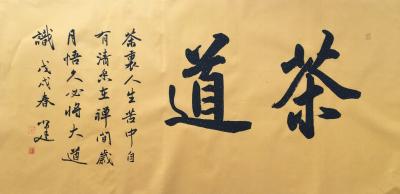 茶道
茶裏人生苦中自
有清乐在禪間歲
月悟久必將大道
識 戊戌春